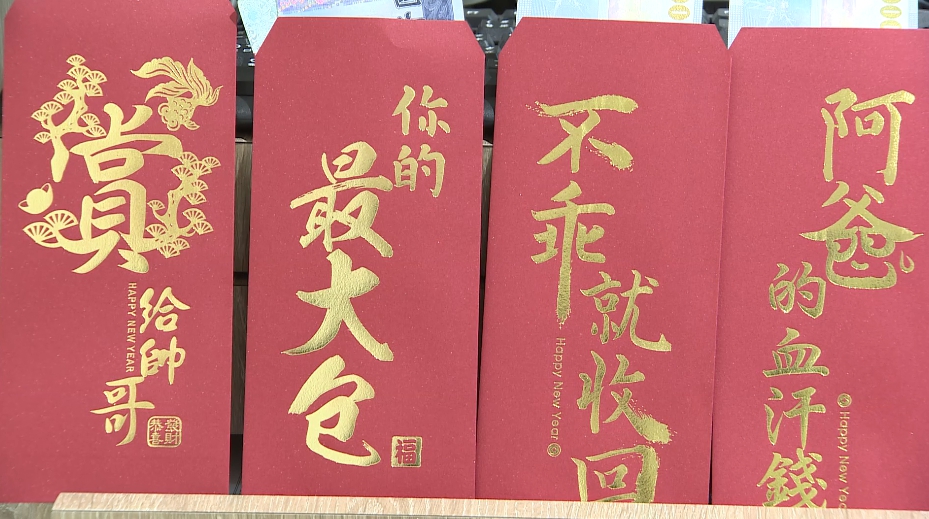 賞
給帥哥
HAPPY NEW YEAR
恭喜發財
你的
最大包
福
不乖
就收回
Happy New Year
阿爸
的血汗錢
Happy New Yea